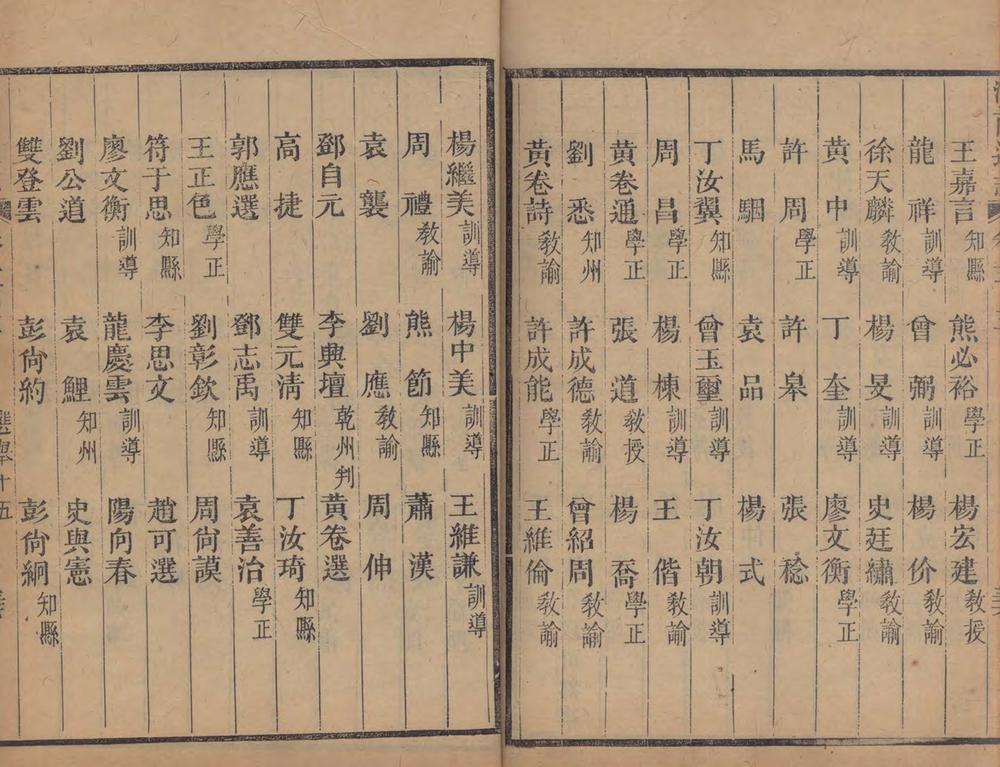 王嘉言知縣 熊必裕學正 楊宏建教授
龍祥訓導 曾弼訓導 楊价教諭
徐天麟教諭 楊旻訓導 史廷繡教諭
黃中訓導 丁奎訓導 廖文衡學正
許周學正 許皋 張稔
馬駰 袁品 楊式
丁汝翼知縣 曾玉璽訓導 丁汝朝訓導
周昌學正 楊棟訓導 王偕教諭
黃卷通學正 張道教授 楊喬學正
劉悉知州 許成德教諭 曾紹周教諭
黃卷詩教諭 許成能學正 王維倫教諭
楊繼美訓導 楊中美訓導 王維謙訓導
周禮教諭 熊節知縣 蕭漢
袁襲 劉應教諭 周伸
鄧自元 李典壇乾州判 黃卷選
高捷 雙元淸知縣 丁汝琦知縣
郭應選 鄧志禹訓導 袁善治學正
王正色學正 劉彰欽知縣 周尙謨
符于思知縣 李思文 趙可選
廖文衡訓導 龍慶雲訓導 陽向春
劉公道 袁鯉知州 史與憲
雙登雲 彭尙約 彭尙綱知縣
選舉十五